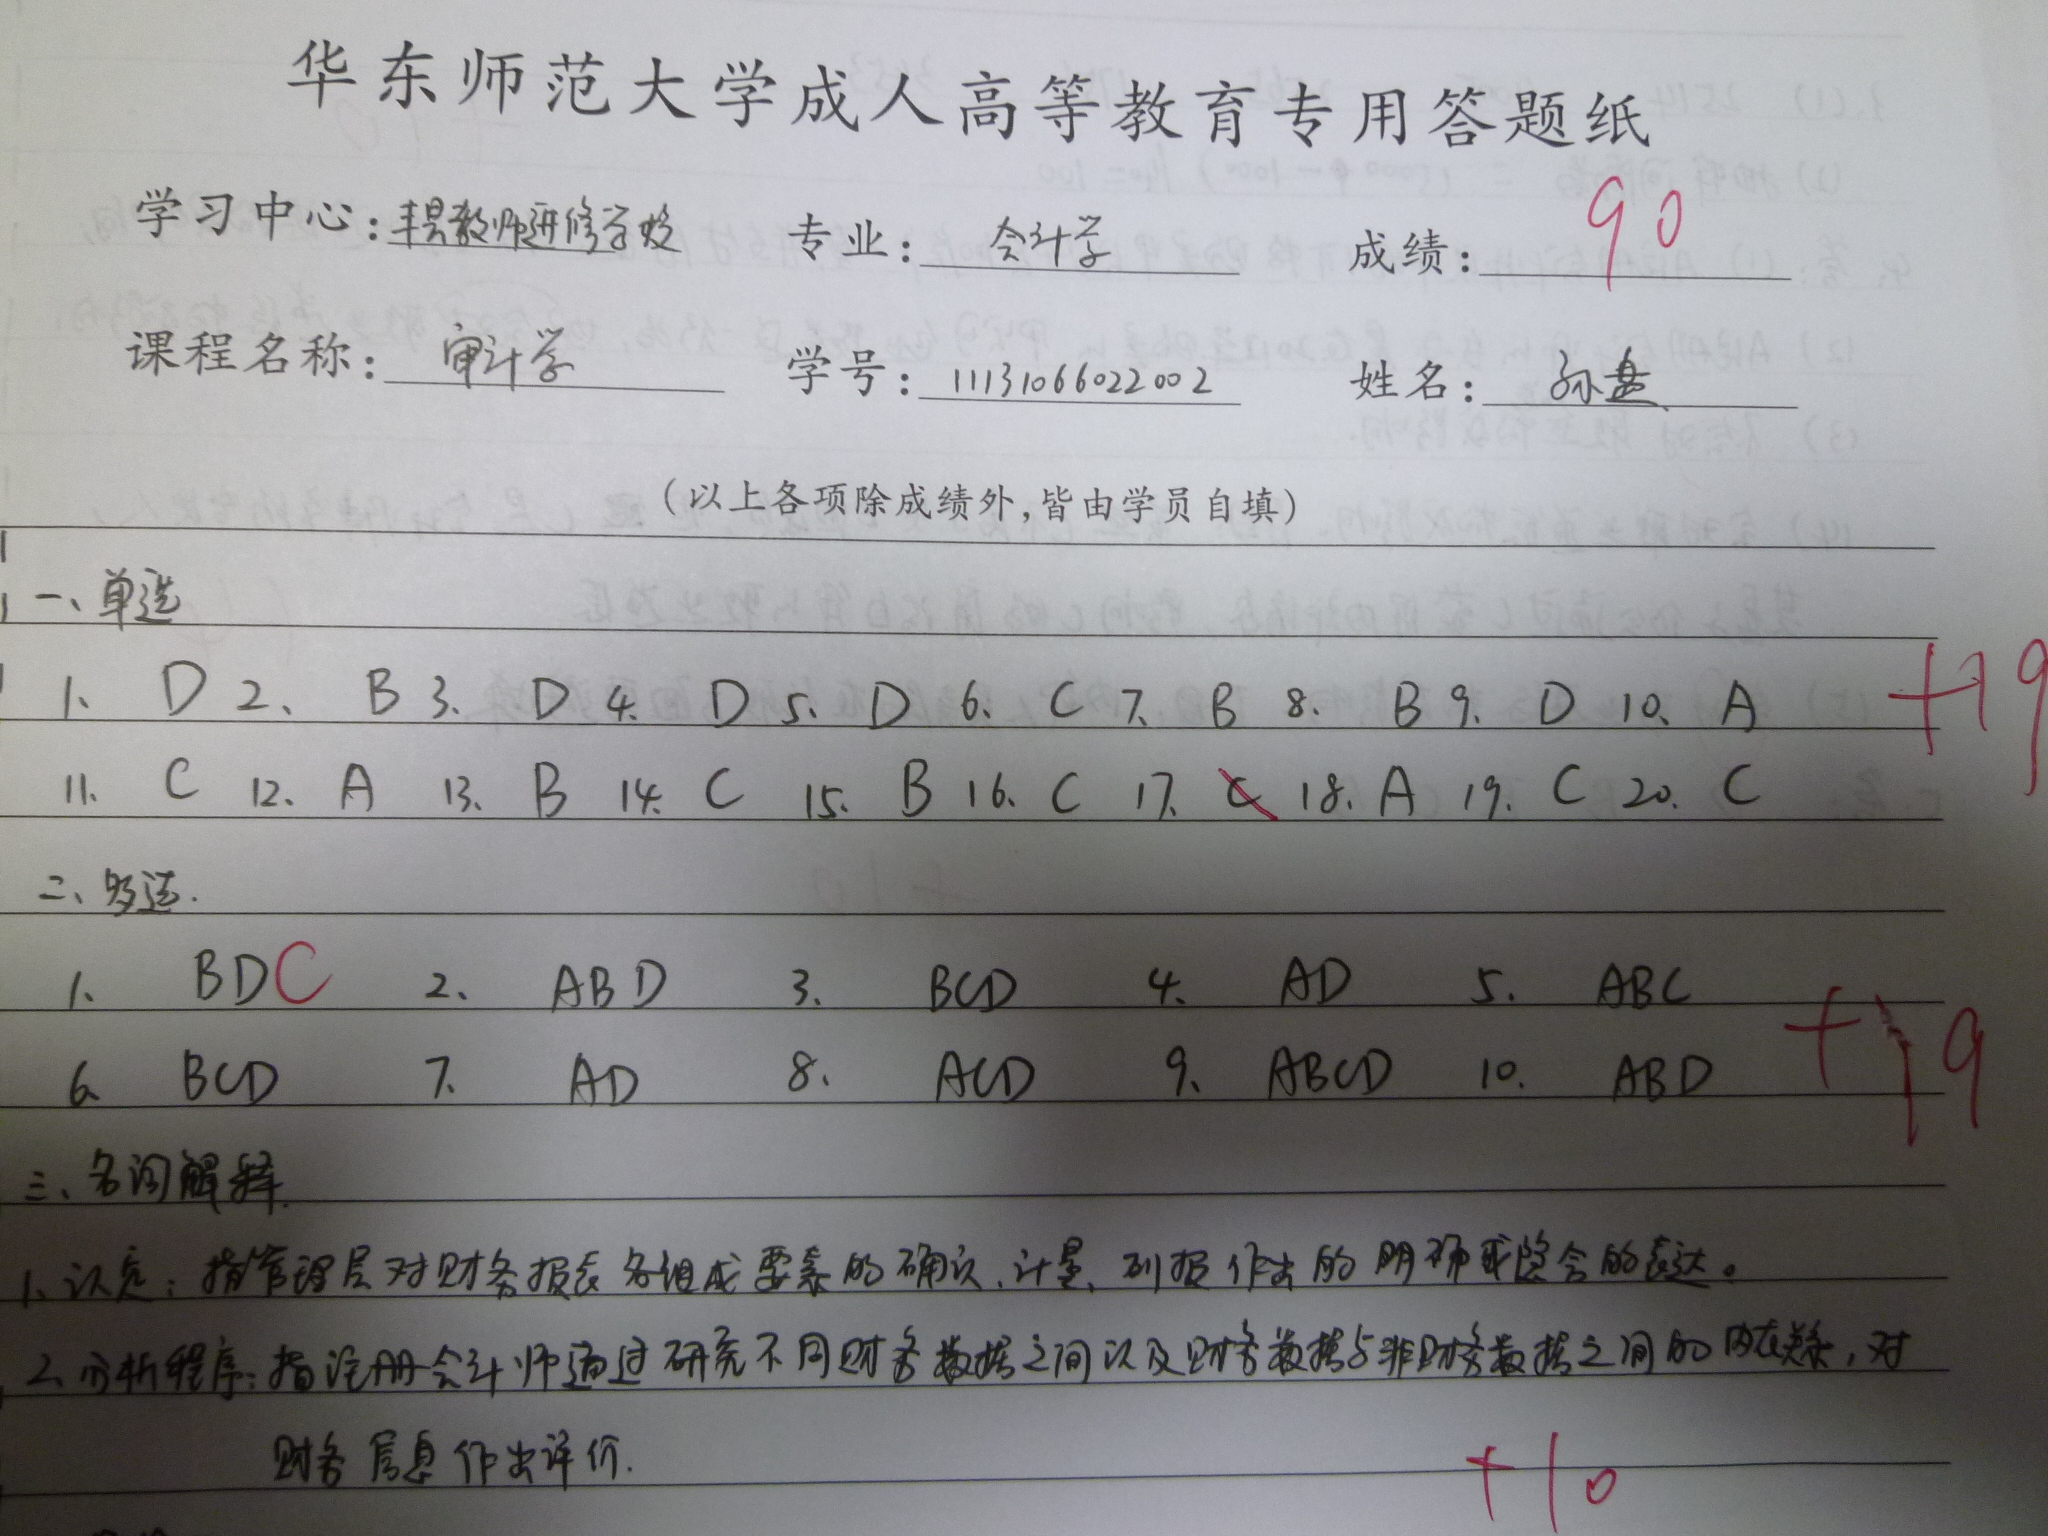 华东师范大学成人高等教育专用答题纸
学习中心:丰县教师进修学校 专业:会计学 成绩:90
课程名称:审计学 学号:11131066022002 姓名:孙盘
(以上各项除成绩外,皆由学员自填)
一、单选
1、D 2、B 3、D 4、D 5、D 6、C 7、B 8、B 9、D 10、A +19
11、C 12、A 13、B 14、C 15、B 16、C 17、C 18、A 19、C 20、C
二、多选.
1、BDC 2、ABD 3、BCD 4、AD 5、ABC +19
6、BCD 7、AD 8、ACD 9、ABCD 10、ABD
三、名词解释.
1、认定:指管理层对财务报表各组成要素的确认、计量、列报作出的明确或隐含的表达。
2、分析程序:指注册会计师通过研究不同财务数据之间以及财务数据与非财务数据之间的内在关系,对
财务信息作出评价.
+10